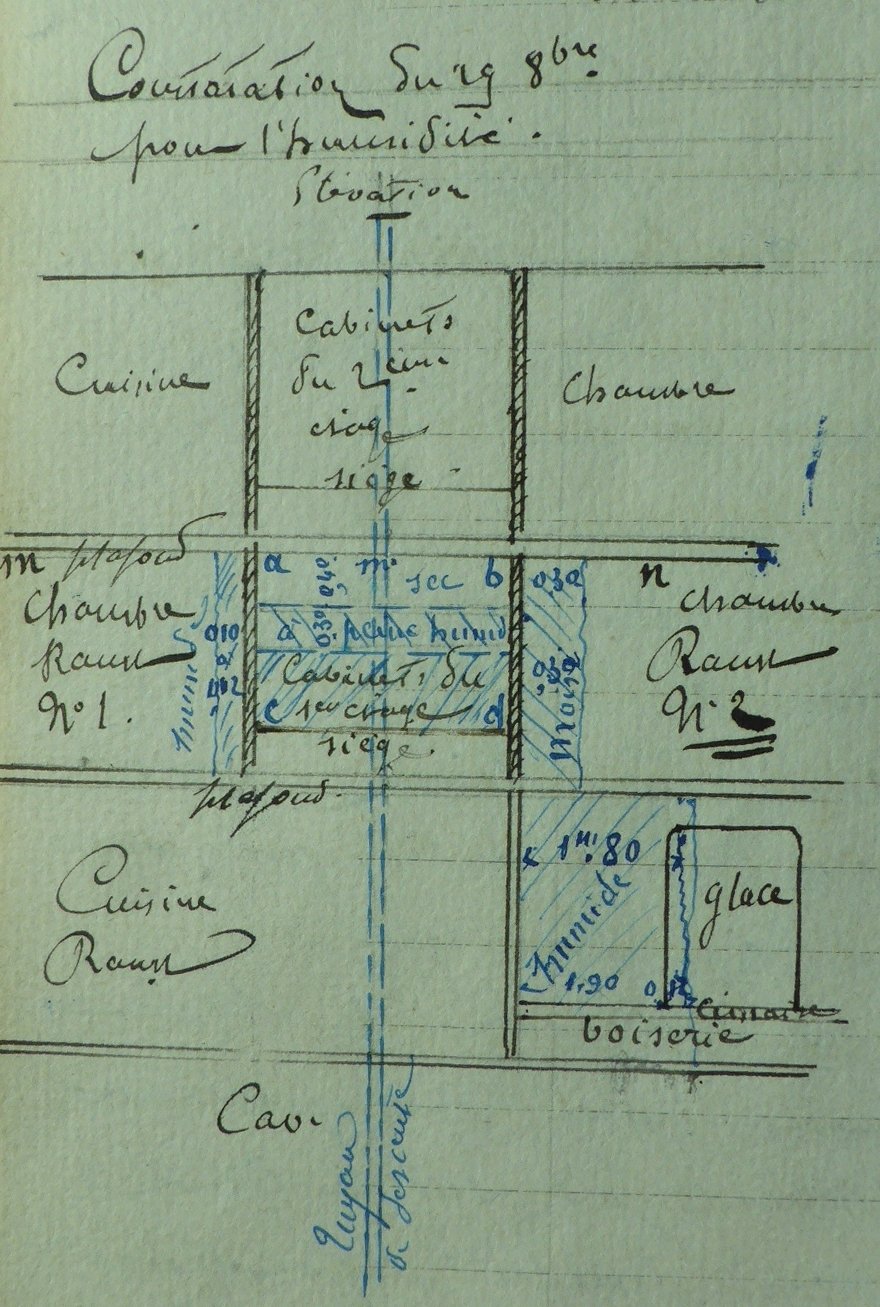 Constatation du 29 8bre
pour l'humidité.
Elévation
Cuisine
Cabinets
du 2eme
étage
siège
Chambre
m plafond
a 0,40. m. sec b
0,30
n
Chambre
Raust
N° 1.
humide
0,10
à
0,12
a' 0,30 peu humid
Cabinets du
1er étage
c d
siège.
0,30
Moisi
Chambre
Raust
N° 2
plafond.
Cuisine
Raust
1m.80
humide
1.90
glace
cimaise
boiserie
Cave
Tuyau
de descente